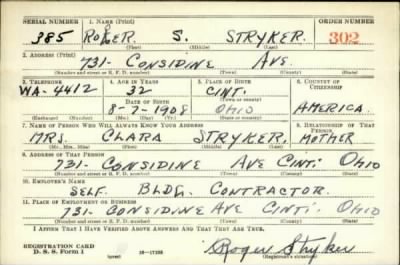 SERIAL NUMBER 1. NAME (Print) ORDER NUMBER
385 ROGER S. STRYKER. 302
(First) (Middle) (Last)
2. ADDRESS (Print)
731- CONSIDINE AVE.
(Number and street or R. F. D. number) (Town) (County) (State)
3. TELEPHONE 4. AGE IN YEARS 5. PLACE OF BIRTH 6. COUNTRY OF CITIZENSHIP
WA-4412 32 CINT.
DATE OF BIRTH (Town or county)
8-7-1908 OHIO AMERICA.
(Exchange) (Number) (Mo.) (Day) (Yr.) (State or country)
7. NAME OF PERSON WHO WILL ALWAYS KNOW YOUR ADDRESS 8. RELATIONSHIP OF THAT PERSON
MR. CLARA STRYKER, MOTHER
(Mr., Mrs., Miss) (First) (Middle) (Last)
9. ADDRESS OF THAT PERSON
731- CONSIDINE AVE CINTI OHIO
(Number and street or R. F. D. number) (Town) (County) (State)
10. EMPLOYER'S NAME
SELF. BLDG. CONTRACTOR.
11. PLACE OF EMPLOYMENT OR BUSINESS
731- CONSIDINE AVE CINTI. OHIO
(Number and street or R. F. D. number) (Town) (County) (State)
I AFFIRM THAT I HAVE VERIFIED ABOVE ANSWERS AND THAT THEY ARE TRUE.
REGISTRATION CARD
D. S. S. FORM 1 (over) 16-17105 Roger Stryker